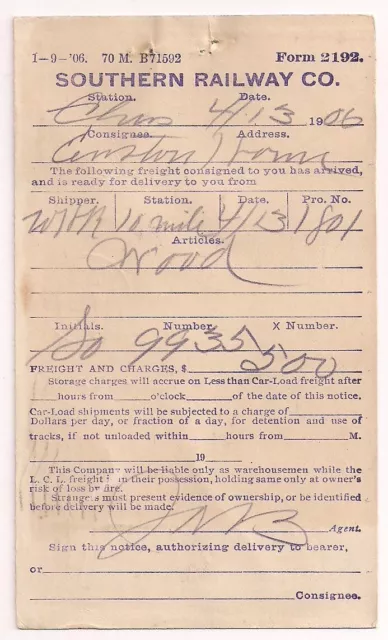 1-9-'06. 70 M. B71592 Form 2192.
SOUTHERN RAILWAY CO.
Station. Date.
Chas 4/13 1906
Consignee. Address.
The following freight consigned to you has arrived,
and is ready for delivery to you from
Shipper. Station. Date. Pro. No.
10 mile 4/13 1801
Articles.
Wood
Initials. Number. X Number.
So 9935
FREIGHT AND CHARGES, $ 500
Storage charges will accrue on Less than Car-Load freight after
hours from o'clock of the date of this notice.
Car-Load shipments will be subjected to a charge of
Dollars per day, or fraction of a day, for detention and use of
tracks, if not unloaded within hours from M.
19
This Company will be liable only as warehousemen while the
L. C. L. freight is in their possession, holding same only at owner's
risk of loss by fire.
Strangers must present evidence of ownership, or be identified
before delivery will be made.
Agent.
Sign this notice, authorizing delivery to bearer,
or
Consignee.